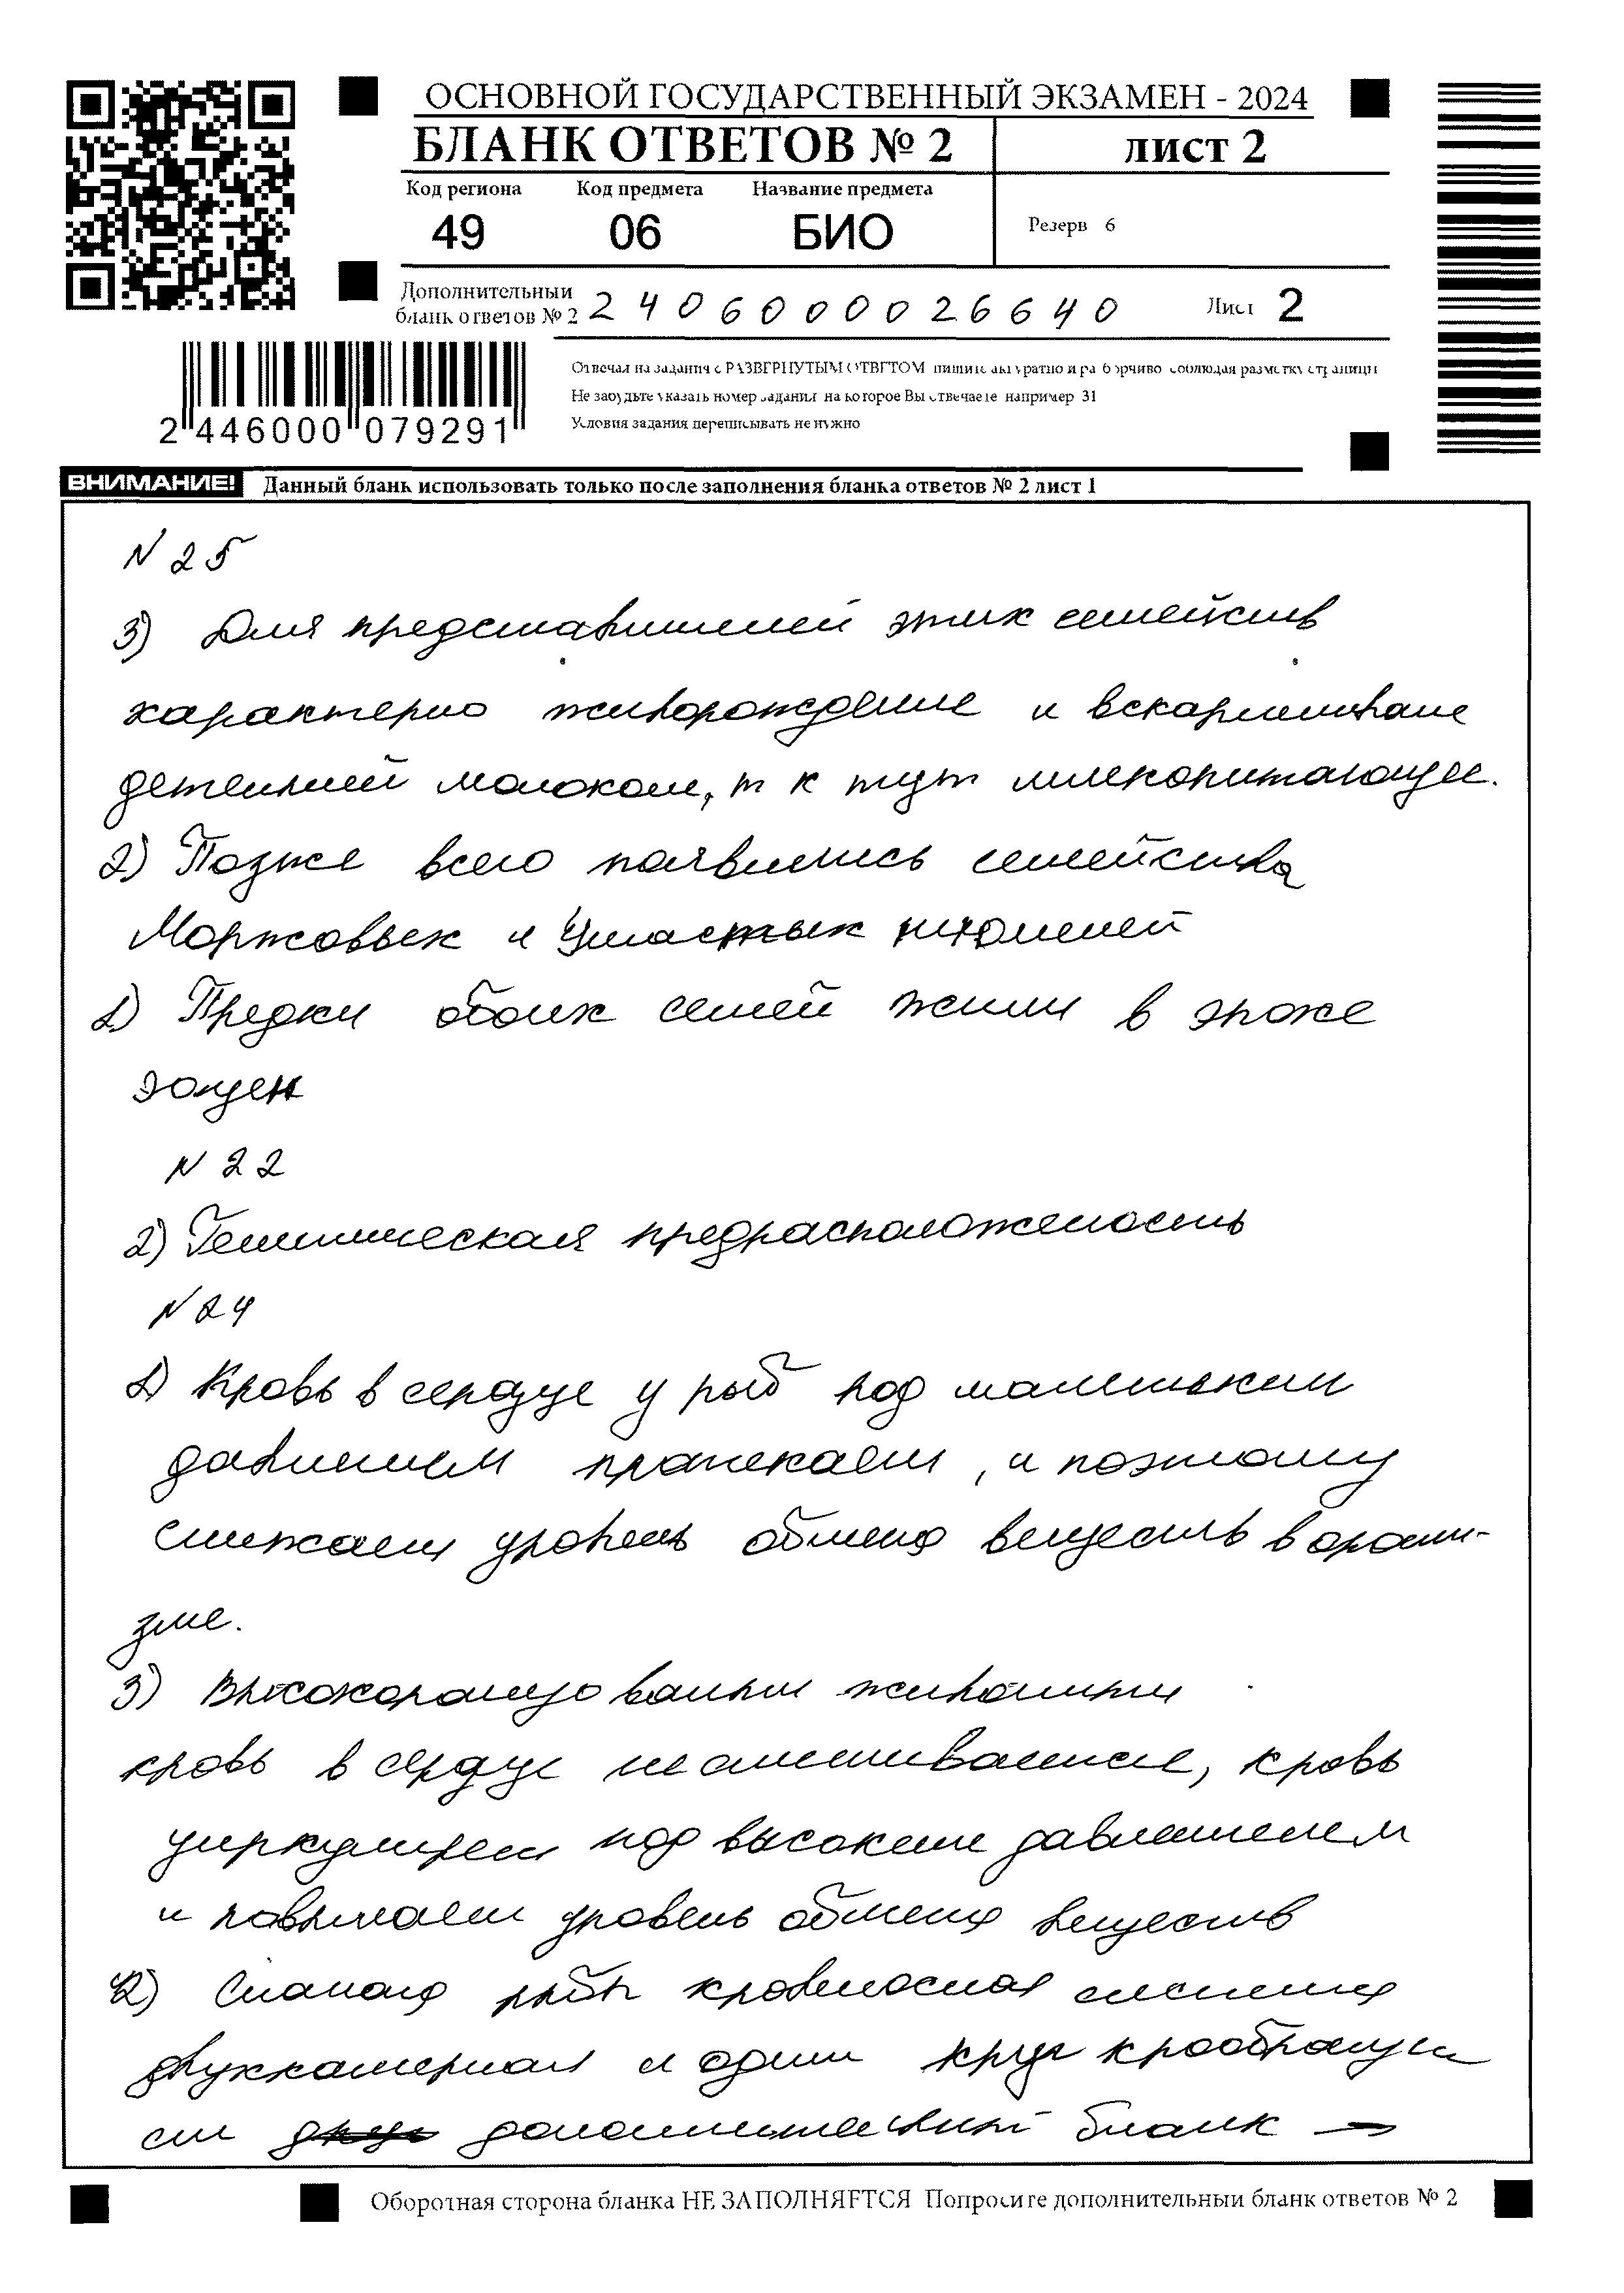 ОСНОВНОЙ ГОСУДАРСТВЕННЫЙ ЭКЗАМЕН - 2024
БЛАНК ОТВЕТОВ № 2
ЛИСТ 2
Код региона Код предмета Название предмета
49 06 БИО
Резерв 6
Дополнительный
бланк ответов № 2 2406000026640
Лист 2
Отвечая на задания с РАЗВЕРНУТЫМ ОТВЕТОМ пишите аккуратно и разборчиво соблюдая разметку страницы
Не забудьте указать номер задания на которое Вы отвечаете например 31
Условия задания переписывать не нужно
2 446000 079291
ВНИМАНИЕ! Данный бланк использовать только после заполнения бланка ответов № 2 лист 1
N 25
3) Для представителей этих семейств
характерно живорождение и вскармливане
детенышей молоком, т к тут млекопитающее.
2) Позже всего появились семейства
Моржовых и Ушастых тюленей
1) Предки обоих семей жили в эпохе
эоцен
N 22
2) Генетическая предрасположеность
N 24
1) Кровь в сердце у рыб под маленьким
давлением протекает, и поэтому
снижает уровень обмена веществ в органи-
зме.
3) животными
кровь в сердце не смешивается, кровь
под высоким давлением
и повышает уровень обмена веществ
2) рыбы кровеносная система
двухкамерная и один круг
см дополнительный бланк →
Оборотная сторона бланка НЕ ЗАПОЛНЯЕТСЯ Попросите дополнительный бланк ответов № 2